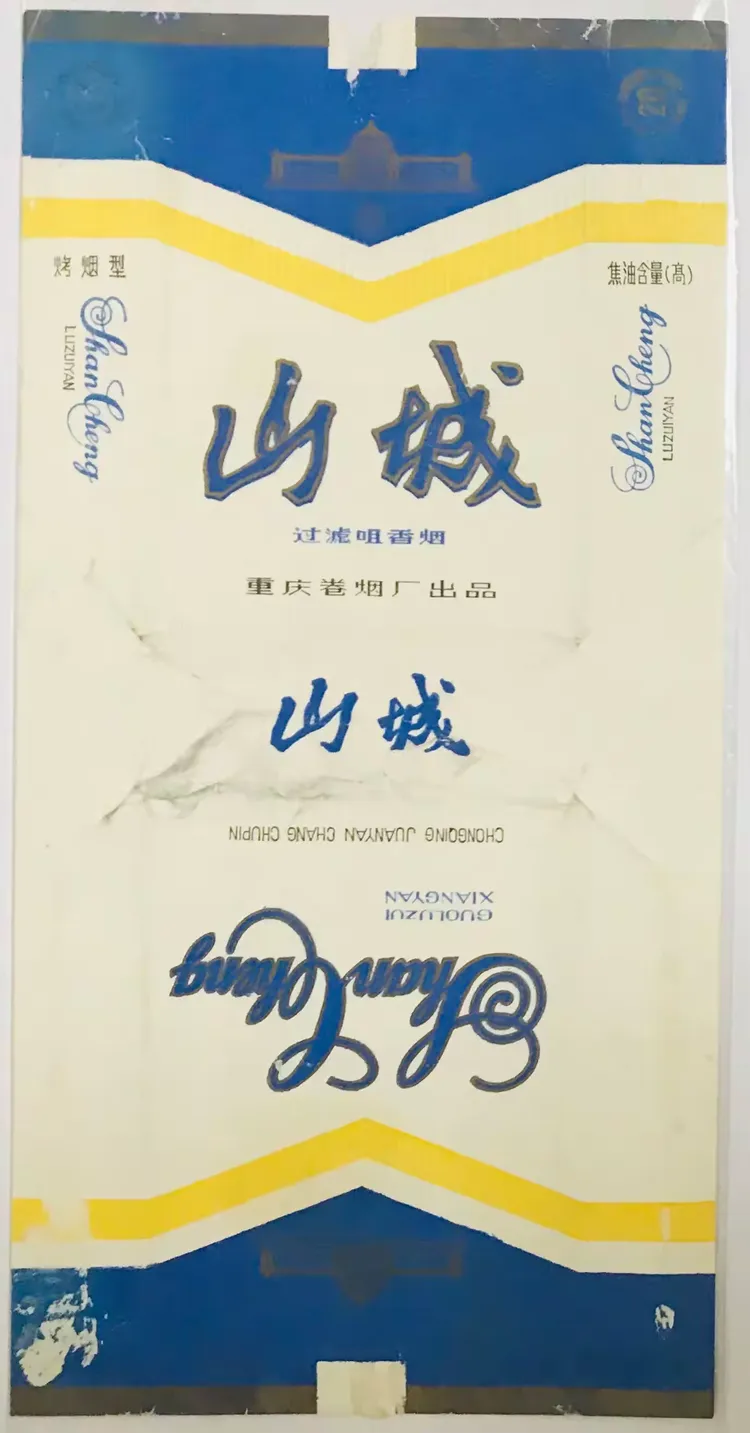 烤烟型
焦油含量(高)
Shan Cheng
LUZUIYAN
Shan Cheng
LUZUIYAN
山城
过滤咀香烟
重庆卷烟厂出品
山城
CHONGQING JUANYAN CHANG CHUPIN
GUOLUZUI
XIANGYAN
Shan Cheng